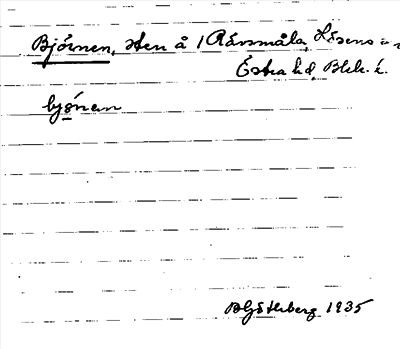 Björnen, sten å 1 Rävsmåla, Lösens sn
Östra hd, Blek. l.
bjö́nan
B Götleberg 1935